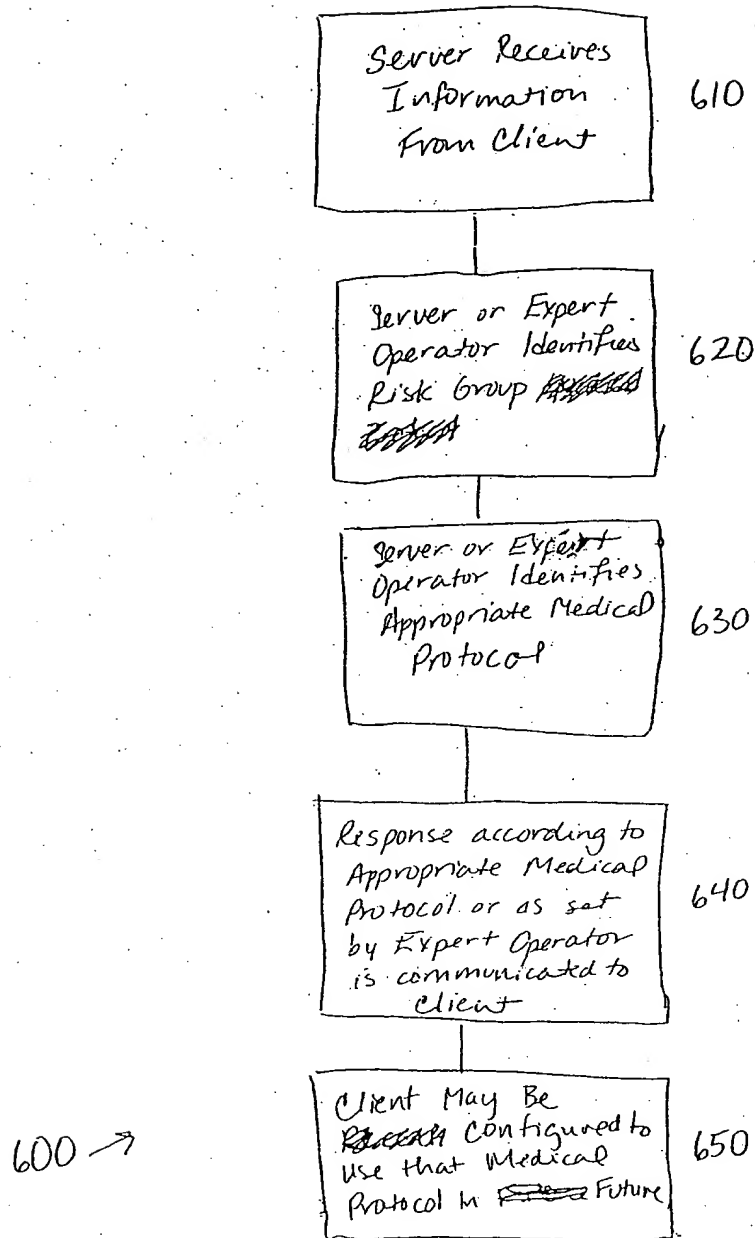 Server Receives
Information
From Client
610
Server or Expert
Operator Identifies
Risk Group
620
Server or Expert
Operator Identifies
Appropriate Medical
Protocol
630
Response according to
Appropriate Medical
Protocol or as set
by Expert Operator
is communicated to
Client
640
Client May Be
Configured to
Use that Medical
Protocol in Future
650
600